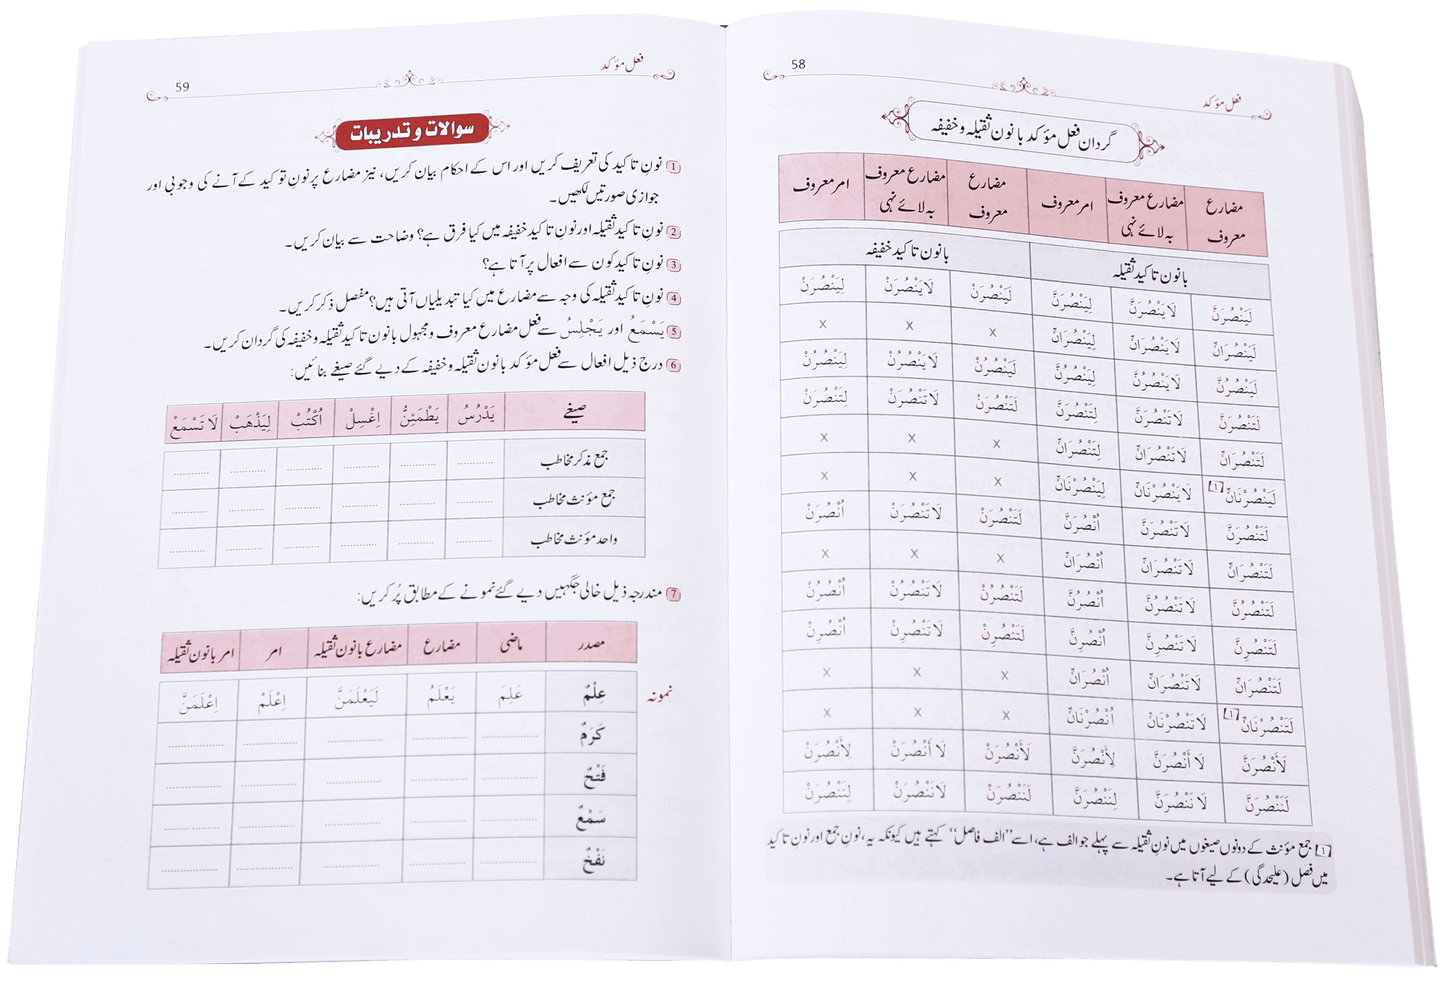 58
فعل مؤکد
گردان فعل مؤکد بانون ثقیلہ و خفیفہ
مضارع معروف | مضارع معروف بہ لائے نہی | امر معروف | مضارع معروف | مضارع معروف بہ لائے نہی | امر معروف
بانون تاکید ثقیلہ | بانون تاکید خفیفہ
لَيَنْصُرَنَّ | لَا يَنْصُرَنَّ | لِيَنْصُرَنَّ | لَيَنْصُرَنْ | لَا يَنْصُرَنْ | لِيَنْصُرَنْ
لَيَنْصُرَانِّ | لَا يَنْصُرَانِّ | لِيَنْصُرَانِّ | x | x | x
لَيَنْصُرُنَّ | لَا يَنْصُرُنَّ | لِيَنْصُرُنَّ | لَيَنْصُرُنْ | لَا يَنْصُرُنْ | لِيَنْصُرُنْ
لَتَنْصُرَنَّ | لَا تَنْصُرَنَّ | لِتَنْصُرَنَّ | لَتَنْصُرَنْ | لَا تَنْصُرَنْ | لِتَنْصُرَنْ
لَتَنْصُرَانِّ | لَا تَنْصُرَانِّ | لِتَنْصُرَانِّ | x | x | x
لَيَنْصُرْنَانِّ [1] | لَا يَنْصُرْنَانِّ | لِيَنْصُرْنَانِّ | x | x | x
لَتَنْصُرَنَّ | لَا تَنْصُرَنَّ | اُنْصُرَنَّ | لَتَنْصُرَنْ | لَا تَنْصُرَنْ | اُنْصُرَنْ
لَتَنْصُرَانِّ | لَا تَنْصُرَانِّ | اُنْصُرَانِّ | x | x | x
لَتَنْصُرُنَّ | لَا تَنْصُرُنَّ | اُنْصُرُنَّ | لَتَنْصُرُنْ | لَا تَنْصُرُنْ | اُنْصُرُنْ
لَتَنْصُرِنَّ | لَا تَنْصُرِنَّ | اُنْصُرِنَّ | لَتَنْصُرِنْ | لَا تَنْصُرِنْ | اُنْصُرِنْ
لَتَنْصُرَانِّ | لَا تَنْصُرَانِّ | اُنْصُرَانِّ | x | x | x
لَتَنْصُرْنَانِّ [1] | لَا تَنْصُرْنَانِّ | اُنْصُرْنَانِّ | x | x | x
لَأَنْصُرَنَّ | لَا أَنْصُرَنَّ | لِأَنْصُرَنَّ | لَأَنْصُرَنْ | لَا أَنْصُرَنْ | لِأَنْصُرَنْ
لَنَنْصُرَنَّ | لَا نَنْصُرَنَّ | لِنَنْصُرَنَّ | لَنَنْصُرَنْ | لَا نَنْصُرَنْ | لِنَنْصُرَنْ
[1] جمع مؤنث کے دونوں صیغوں میں نونِ ثقیلہ سے پہلے جو الف ہے، اسے ”الف فاصل“ کہتے ہیں کیونکہ یہ، نونِ جمع اور نون تاکید
میں فصل (علیحدگی) کے لیے آتا ہے۔
فعل مؤکد
59
سوالات و تدریبات
1 نونِ تاکید کی تعریف کریں اور اس کے احکام بیان کریں، نیز مضارع پر نونِ توکید کے آنے کی وجوبی اور
جوازی صورتیں لکھیں۔
2 نونِ تاکید ثقیلہ اور نونِ تاکید خفیفہ میں کیا فرق ہے؟ وضاحت سے بیان کریں۔
3 نونِ تاکید کون سے افعال پر آتا ہے؟
4 نونِ تاکید ثقیلہ کی وجہ سے مضارع میں کیا تبدیلیاں آتی ہیں؟ مفصل ذکر کریں۔
5 يَسْمَعُ اور يَجْلِسُ سے فعل مضارع معروف و مجہول بانون تاکید ثقیلہ و خفیفہ کی گردان کریں۔
6 درج ذیل افعال سے فعل مؤکد بانون ثقیلہ و خفیفہ کے دیے گئے صیغے بنائیں:
صیغے | يَدْرُسُ | يَطْمَئِنُّ | اِغْسِلْ | اُكْتُبْ | لِيَذْهَبْ | لَا تَسْمَعْ
جمع مذکر مخاطب | ............ | ............ | ............ | ............ | ............ | ............
جمع مؤنث مخاطب | ............ | ............ | ............ | ............ | ............ | ............
واحد مؤنث مخاطب | ............ | ............ | ............ | ............ | ............ | ............
7 مندرجہ ذیل خالی جگہیں دیے گئے نمونے کے مطابق پُر کریں:
مصدر | ماضی | مضارع | مضارع بانون ثقیلہ | امر | امر بانون ثقیلہ
نمونہ | عِلْمٌ | عَلِمَ | يَعْلَمُ | لَيَعْلَمَنَّ | اِعْلَمْ | اِعْلَمَنَّ
كَرَمٌ | ............ | ............ | ............ | ............ | ............
فَتْحٌ | ............ | ............ | ............ | ............ | ............
سَمْعٌ | ............ | ............ | ............ | ............ | ............
نَفْخٌ | ............ | ............ | ............ | ............ | ............